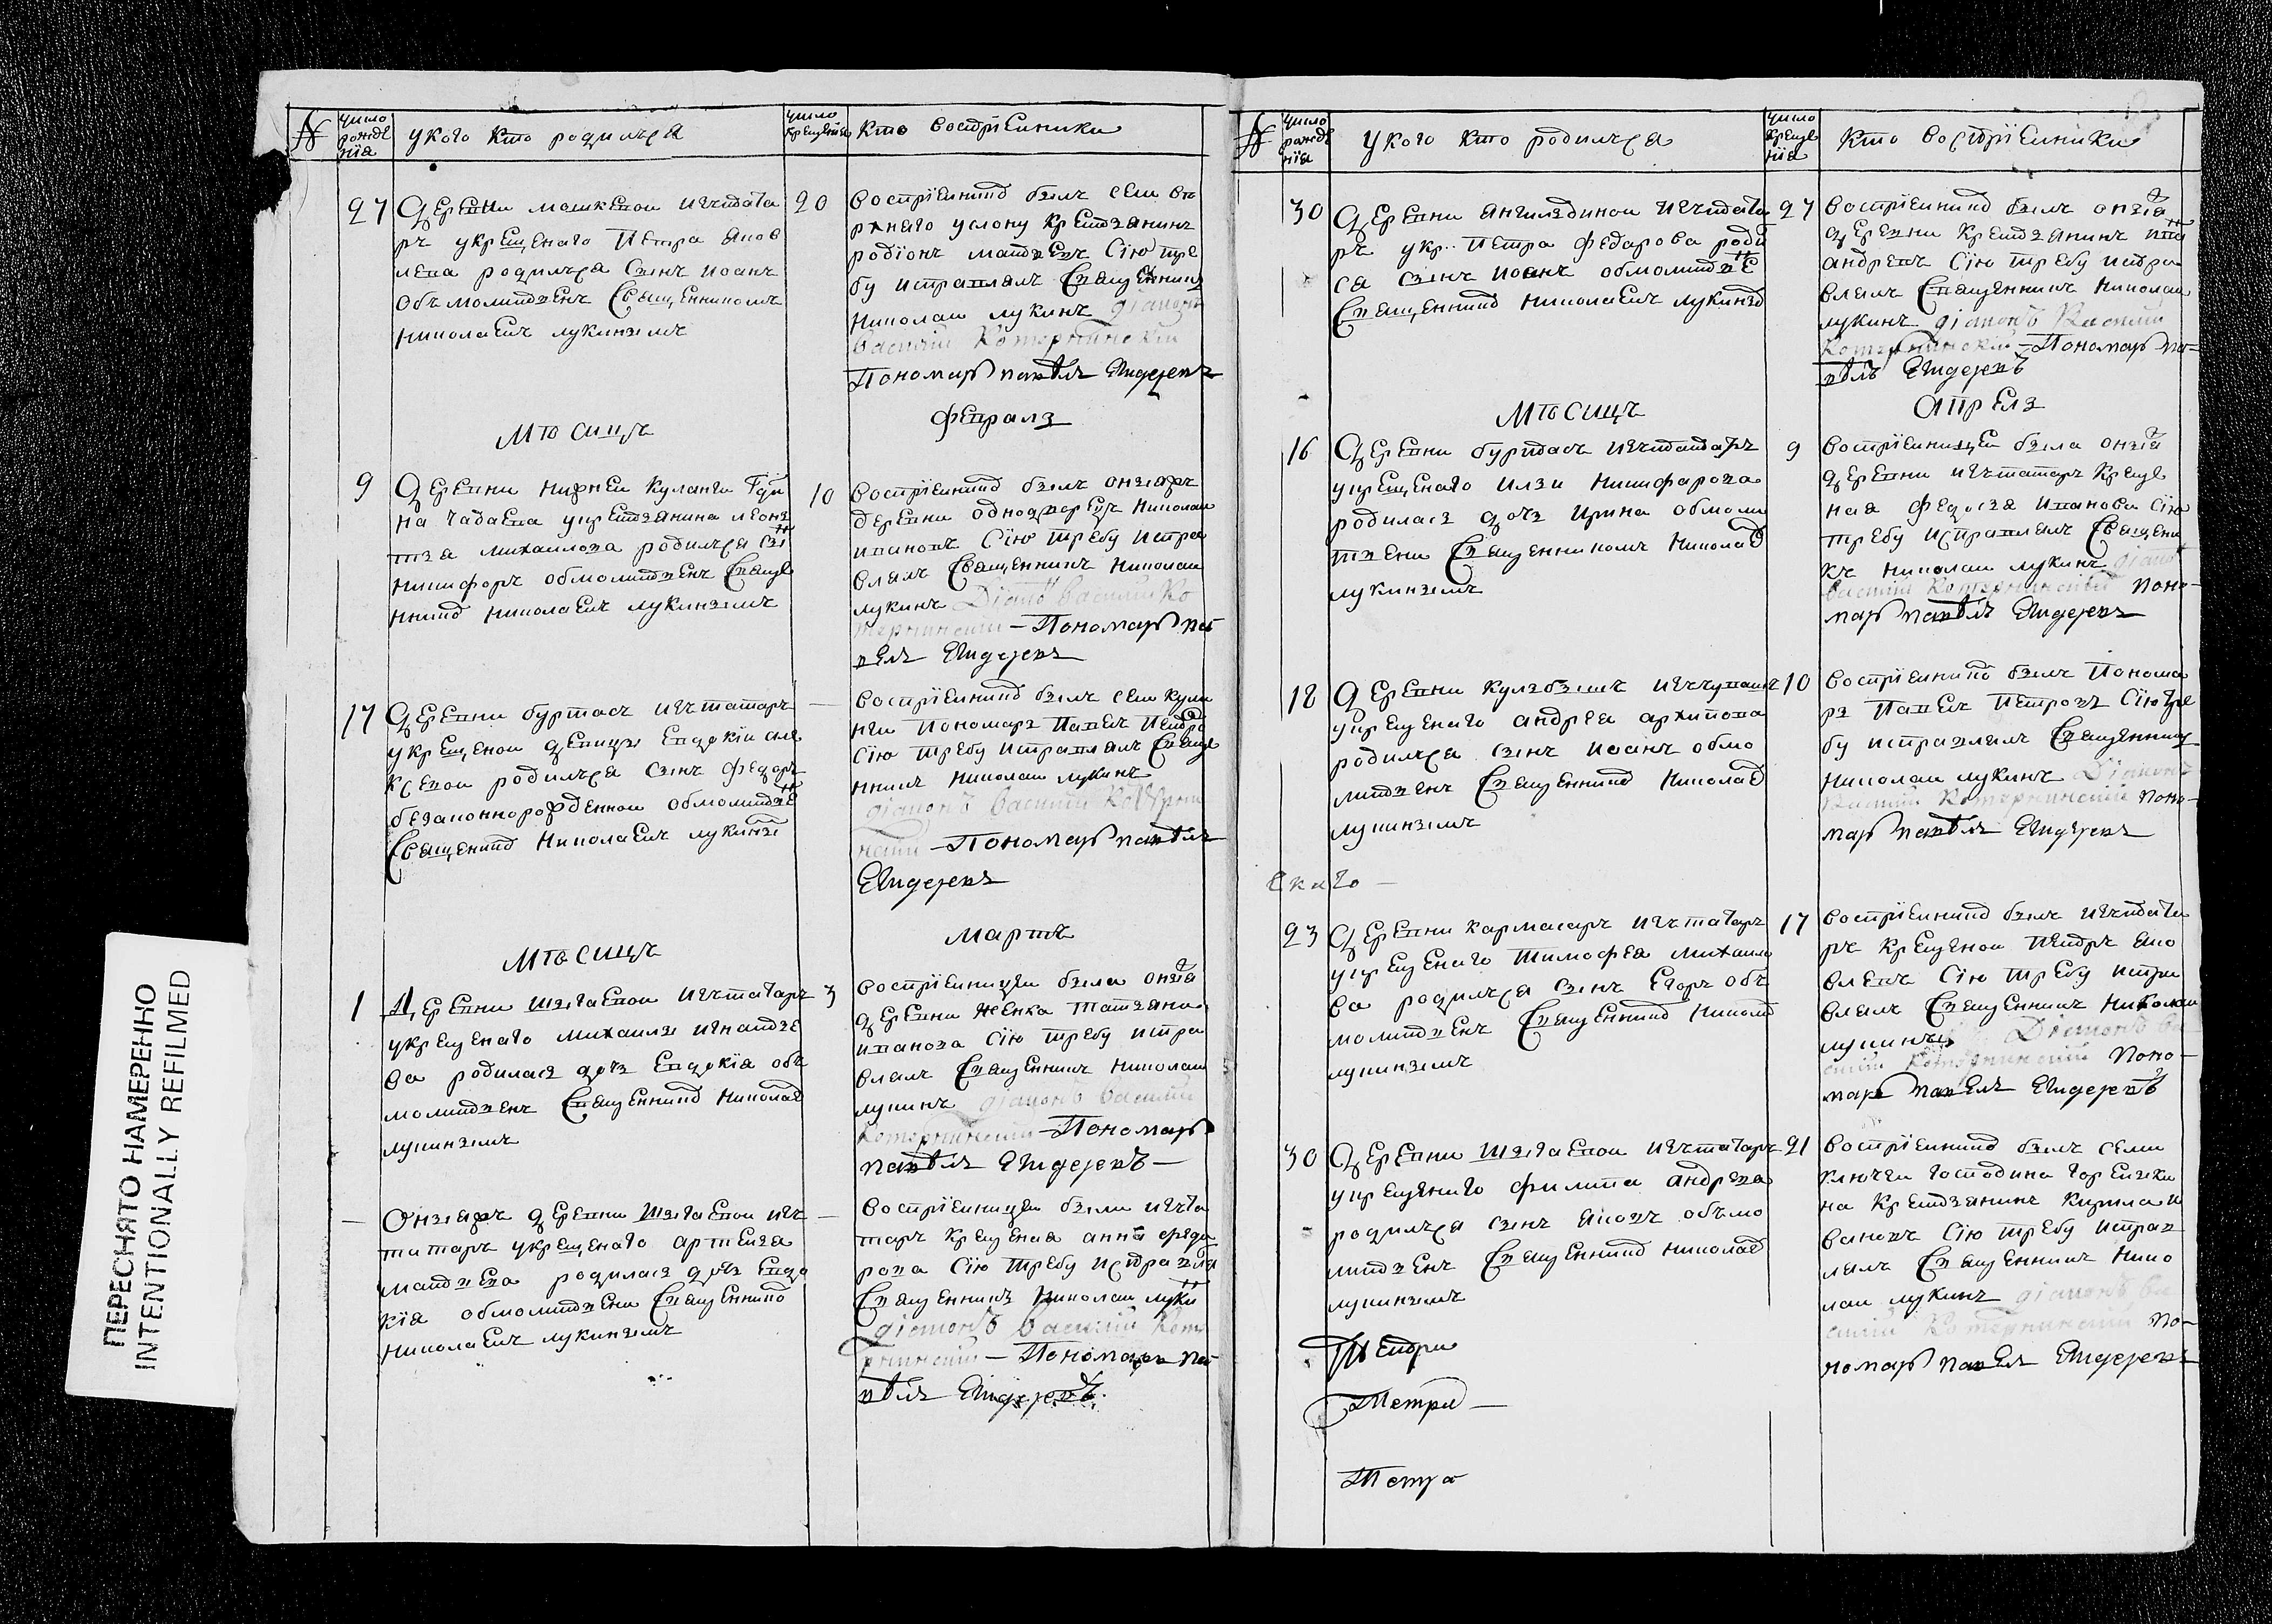 №
число рождения
У кого кто родился
число крещения
Кто восприемники
27
Деревни Мошкевой изъ тата
ръ у крещенаго Петра Яков
лева родился сынъ Иоанъ
объмолитвенъ Священникомъ
Николаемъ Лукинымъ
20
восприемникъ былъ села Ве
рхняго Услону крестьянинъ
Родионъ Матвеевъ Сию тре
бу исправлялъ Священникъ
Николай Лукинъ диаконъ
Василий
Пономарь Павелъ
Мѣсяцъ
Февраль
9
Деревни Нижней Куланги
на Чадаева у крестьянина Леонт
ья Михайлова родился сынъ
Никифоръ обмолитвенъ Свяще
нникъ Николаемъ Лукинымъ
10
восприемникъ былъ оныяжъ
деревни однодворецъ Николай
Ивановъ Сию требу испра
влялъ Священникъ Николай
Лукинъ Диаконъ Василий Ко
Пономарь Па
велъ
17
Деревни Буртасъ изъ татаръ
у крещеной девицы Евдокии Але
ксеевой родился сынъ Федоръ
безаконнорожденной обмолитвенъ
Священикъ Николаемъ Лукины
—
восприемникъ былъ села Кула
нги Пономарь Павелъ Петро
Сию требу исправлялъ Свяще
нникъ Николай Лукинъ
диаконъ Василий
Пономарь Павелъ
Мѣсяцъ
Мартъ
1
Деревни Шигаевой изъ татаръ
у крещенаго Михаилы Игнатье
ва родилась дочь Евдокия объ
молитвенъ Священникъ Николаемъ
Лукинымъ
3
восприемницей была оныя
деревни женка Татьяна
Иванова Сию требу испра
влялъ Священникъ Николай
Лукинъ диаконъ Василий
Пономарь
Павелъ
—
Оныяжъ деревни Шигаевой изъ
татаръ у крещенаго Артемья
Матвеева родилась дочь Евдо
кия обмолитвена Священникъ
Николаемъ Лукинымъ
—
восприемницей была изъ та
таръ крещеная Анна Федо
рова Сию требу исправлял
Священникъ Николай Луки
диаконъ Василий
Пономарь Па
велъ
№
число рождения
У кого кто родился
число крещения
Кто восприемники
30
Деревни Ангилдиной изъ тата
ръ у кр. Петра Федорова роди
ся сынъ Иоанъ обмолитвенъ
Священникъ Николаемъ Лукины
27
восприемникъ былъ оныя
деревни крестьянинъ
Андреевъ Сию требу испра
влялъ Священникъ Николай
Лукинъ диаконъ Василий
Пономарь Па
велъ
Мѣсяцъ
Апрель
16
Деревни Буртасъ изъ татаръ
у крещенаго Ильи Никифарова
родилась дочь Ирина обмоли
твена Священникомъ Николае
Лукинымъ
9
восприемницей была оныя
деревни изъ татаръ креще
ная Федосья Иванова Сию
требу исправлялъ Священи
къ Николай Лукинъ диакон
Василий Поно
марь Павелъ
18
Деревни Кулбашъ изъ чувашъ
у крещенаго Андрея Архипова
родился сынъ Иоанъ обмо
литвенъ Священникъ Николае
Лукинымъ
10
восприемникъ былъ Понома
рь Павелъ Петровъ Сию тре
бу исправлялъ Священникъ
Николай Лукинъ Диаконъ
Василий Поно
марь Павелъ
23
Деревни Кармасаръ изъ татаръ
у крещенаго Тимофея Михайло
ва родился сынъ Егоръ объ
молитвенъ Священникъ Николае
Лукинымъ
17
восприемникъ былъ изъ тата
ръ крещеной Петръ Яко
влевъ Сию требу испра
влялъ Священникъ Николай
Лукинъ Диаконъ Ва
силий Поно
марь Павелъ
30
Деревни Шигаевой изъ татаръ
у крещенаго Филипа Андреева
родился сынъ Яковъ объмо
литвенъ Священникъ Николае
Лукинымъ
21
восприемникъ былъ села
Ключей господина
на крестьянинъ Кирила И
вановъ Сию требу исправ
лялъ Священникъ Нико
лай Лукинъ диаконъ Ва
силий По
номарь Павелъ
Петри
Петри
Петра
ПЕРЕСНЯТО НАМЕРЕННО
INTENTIONALLY REFILMED